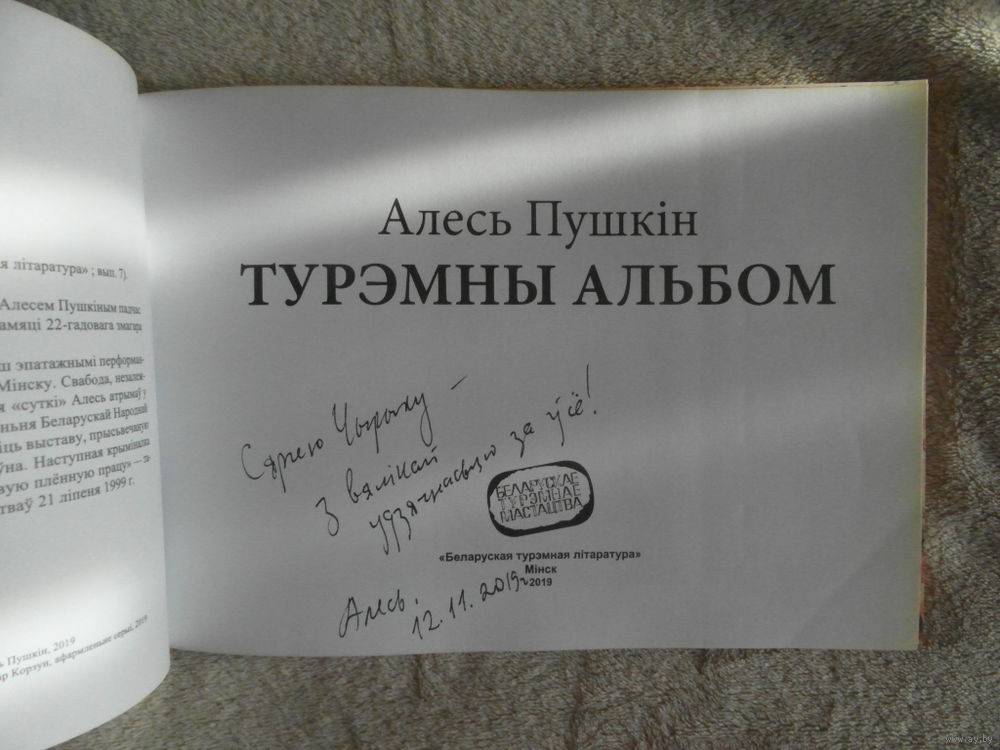 я літаратура» ; вып. 7).
Алесем Пушкіным падчас
амяці 22-гадовага змагара
ш эпатажнымі перформан-
Мінску. Свабода, незалеж-
я «суткі» Алесь атрымаў у
ньня Беларускай Народнай
іць выставу, прысьвечаную
ўна. Наступная крымінальная
вую плённую працу» —
тваў 21 ліпеня 1999 г.
ь Пушкін, 2019
р Корзун, афармленьне серыі, 2019
Алесь Пушкін
ТУРЭМНЫ АЛЬБОМ
Сяргею
З вялікай
удзячнасьцю за ўсё!
БЕЛАРУСКАЕ
ТУРЭМНАЕ
МАСТАЦТВА
«Беларуская турэмная літаратура»
Мінск
2019
Алесь,
12.11.2019г
www.ay.by